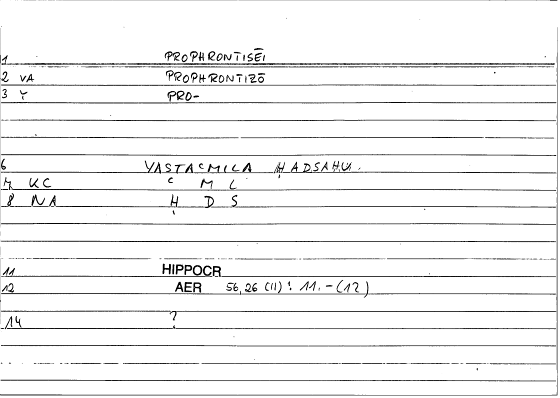 1 PROPHRONTISĒI
2 VA PROPHRONTIZŌ
3 Y PRO-
6 YASTAᶜMILA ḤADSAHU.
7 KC ᶜ M L
8 NA Ḥ D S
11 HIPPOCR
12 AER 56,26 (11) : 11.-(12)
14 ?